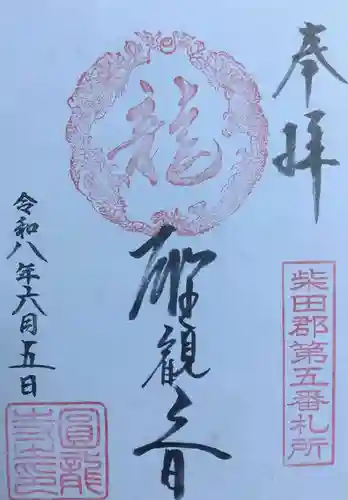 奉拝
柴田郡第五番札所
龍
聖観世音
令和八年六月五日
圓龍
寺印